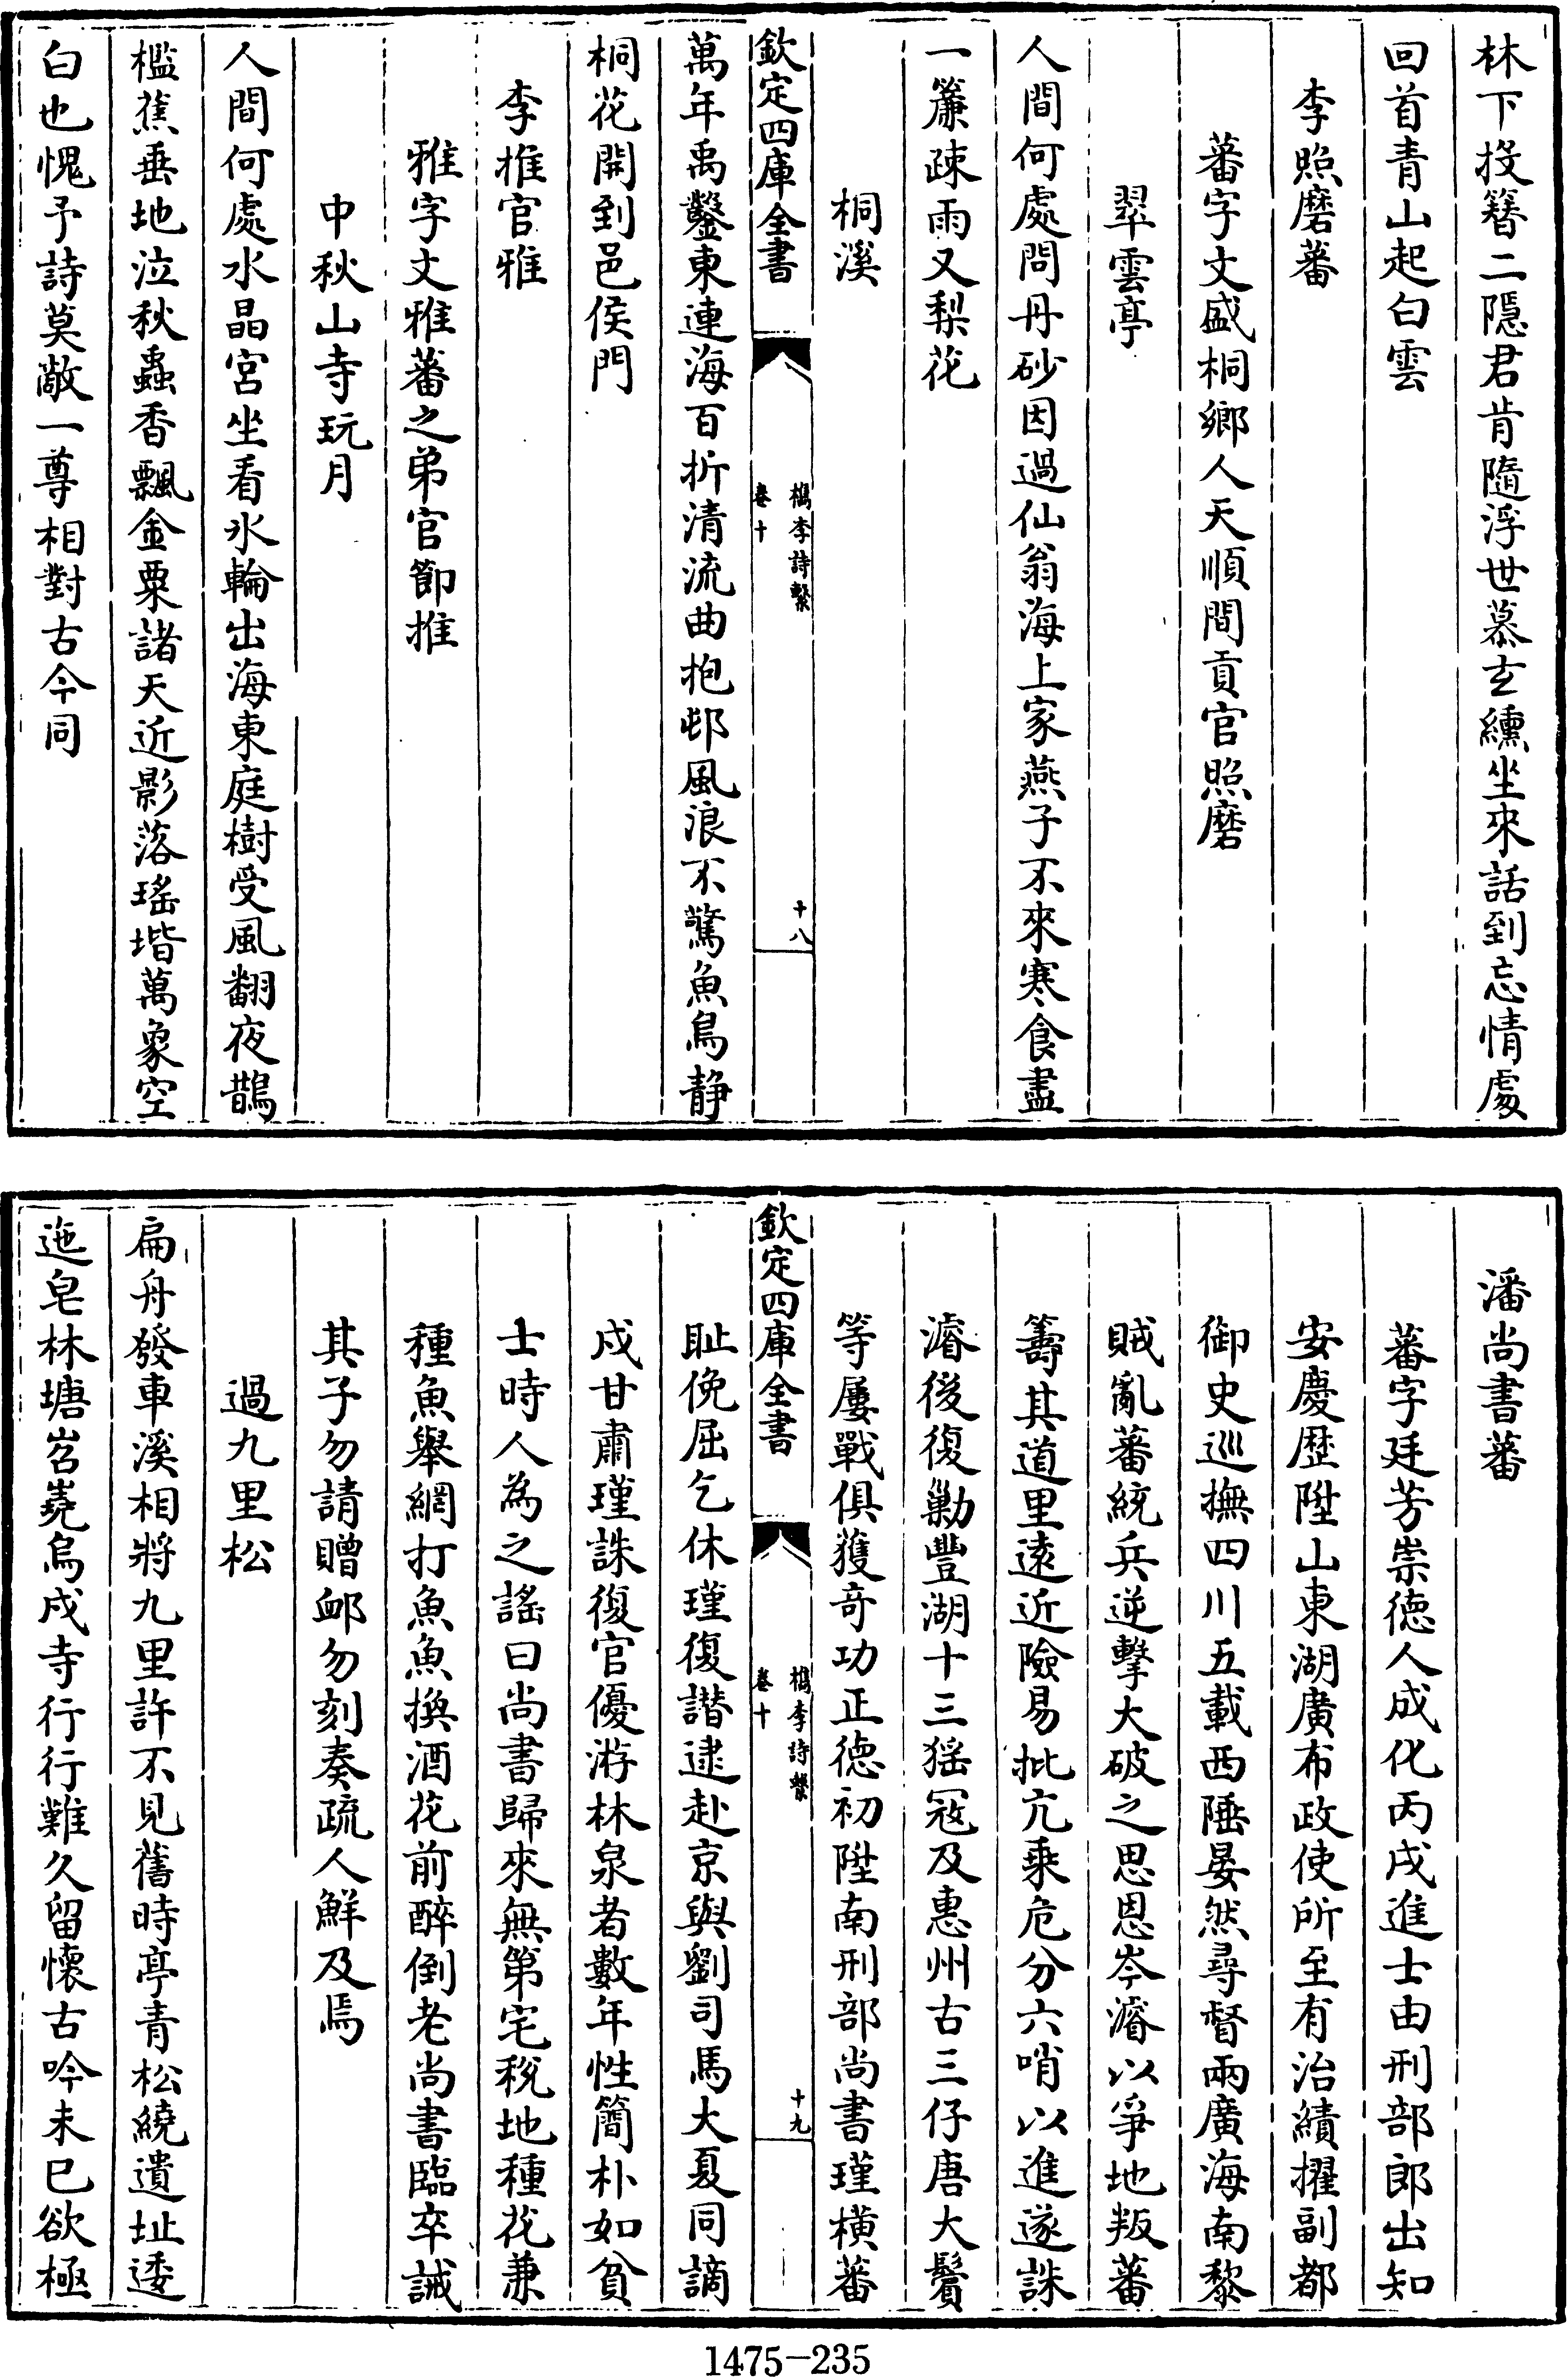 林下投簪二隱君肯隨浮世慕玄纁坐來話到忘情處
回首青山起白雲
李照磨蕃
蕃字文盛桐鄉人天順間貢官照磨
翠雲亭
人間何處問丹砂因過仙翁海上家燕子不來寒食盡
一簾疎雨又梨花
桐溪
欽定四庫全書
檇李詩繫
卷十
十八
萬年禹鑿東連海百折清流曲抱邨風浪不驚魚鳥静
桐花開到邑侯門
李推官雅
雅字文雅蕃之弟官節推
中秋山寺玩月
人間何處水晶宮坐看氷輪出海東庭樹受風翻夜鵲
檻蕉垂地泣秋蟲香飄金粟諸天近影落瑤堦萬象空
白也愧予詩莫敵一尊相對古今同
潘尚書蕃
蕃字廷芳崇德人成化丙戌進士由刑部郎出知
安慶歴陞山東湖廣布政使所至有治績擢副都
御史巡撫四川五載西陲晏然尋督兩廣海南黎
賊亂蕃統兵逆擊大破之思恩岑濬以爭地叛蕃
籌其道里遠近險易批亢乘危分六哨以進遂誅
濬後復勦豐湖十三猺冦及惠州古三仔唐大鬢
等屢戰俱獲奇功正徳初陞南刑部尚書瑾横蕃
欽定四庫全書
檇李詩繫
卷十
十九
耻俛屈乞休瑾復譖逮赴京與劉司馬大夏同謫
戍甘肅瑾誅復官優游林泉者數年性簡朴如貧
士時人為之謠曰尚書歸來無第宅稅地種花兼
種魚舉網打魚魚換酒花前醉倒老尚書臨卒誡
其子勿請贈䘏勿刻奏疏人鮮及焉
過九里松
扁舟發車溪相將九里許不見舊時亭青松繞遺址逶
迤皂林塘岧嶤烏戍寺行行難久留懷古吟未已欲極
1475-235